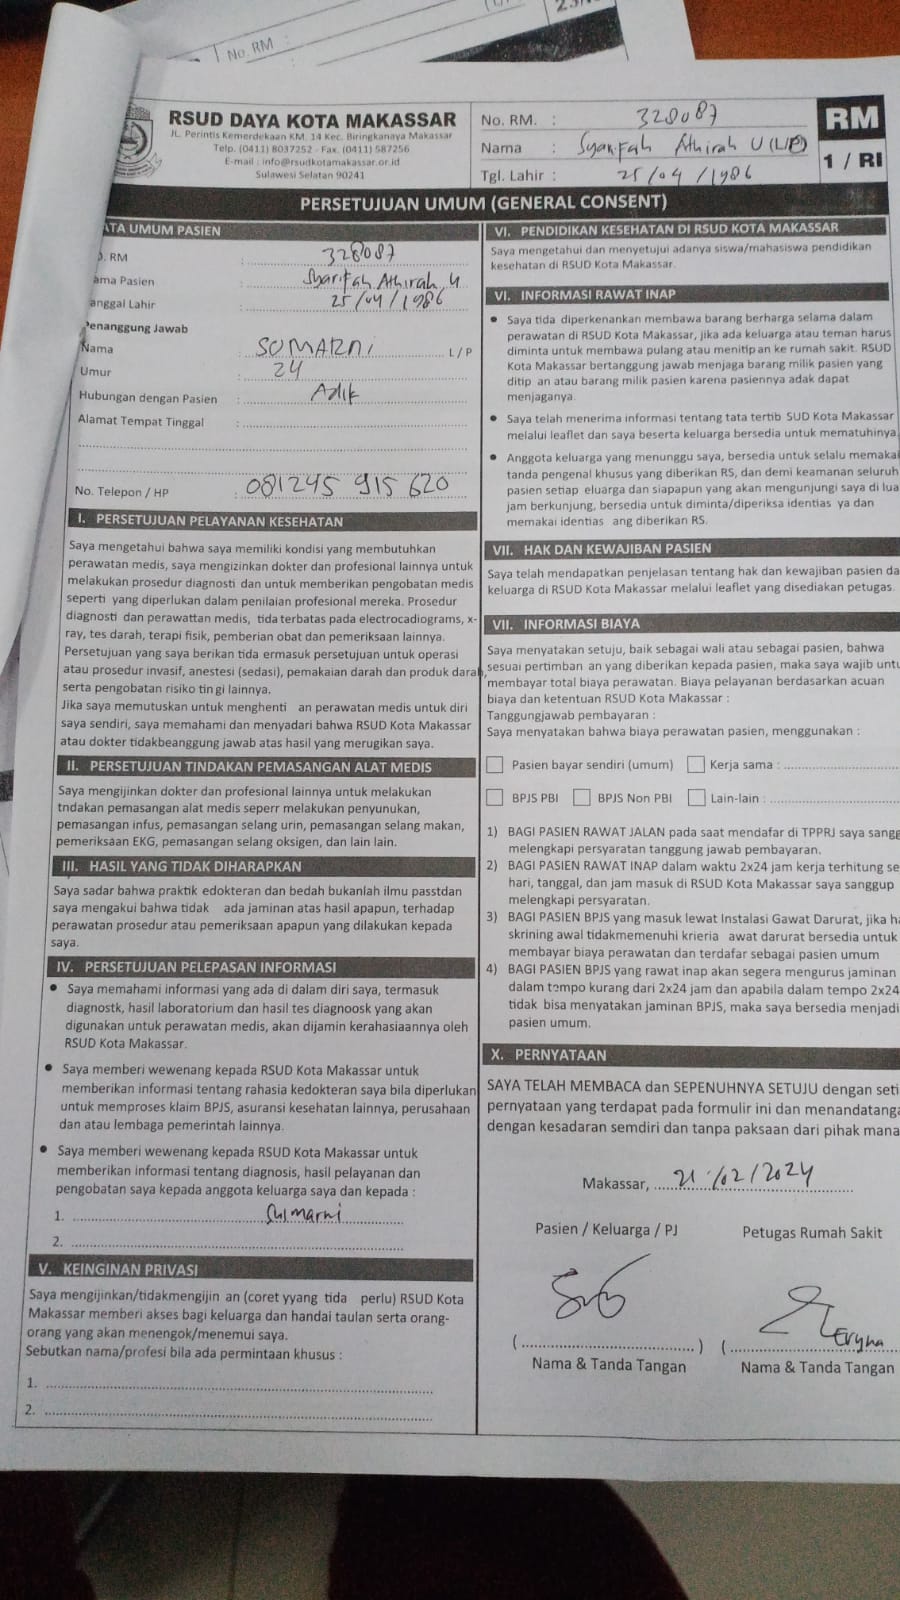 No. RM :
RSUD DAYA KOTA MAKASSAR
JL. Perintis Kemerdekaan KM. 14 Kec. Biringkanaya Makassar
Telp. (0411) 8037252 - Fax. (0411) 587256
E-mail : info@rsudkotamakassar.or.id
Sulawesi Selatan 90241
No. RM. : 328087
Nama : Syarifah Athirah U (L/P)
Tgl. Lahir : 25/04/1986
RM
1 / RI
PERSETUJUAN UMUM (GENERAL CONSENT)
ATA UMUM PASIEN
o. RM : 328087
ama Pasien : Syarifah Athirah U
anggal Lahir : 25/04/1986
Penanggung Jawab
Nama : SUMARNI L/P
Umur : 24
Hubungan dengan Pasien : Adik
Alamat Tempat Tinggal :
No. Telepon / HP : 081245 915 620
I. PERSETUJUAN PELAYANAN KESEHATAN
Saya mengetahui bahwa saya memiliki kondisi yang membutuhkan
perawatan medis, saya mengizinkan dokter dan profesional lainnya untuk
melakukan prosedur diagnosti dan untuk memberikan pengobatan medis
seperti yang diperlukan dalam penilaian profesional mereka. Prosedur
diagnosti dan perawattan medis, tida terbatas pada electrocadiograms, x-
ray, tes darah, terapi fisik, pemberian obat dan pemeriksaan lainnya.
Persetujuan yang saya berikan tida ermasuk persetujuan untuk operasi
atau prosedur invasif, anestesi (sedasi), pemakaian darah dan produk darah,
serta pengobatan risiko tin gi lainnya.
Jika saya memutuskan untuk menghenti an perawatan medis untuk diri
saya sendiri, saya memahami dan menyadari bahwa RSUD Kota Makassar
atau dokter tidakbeanggung jawab atas hasil yang merugikan saya.
II. PERSETUJUAN TINDAKAN PEMASANGAN ALAT MEDIS
Saya mengijinkan dokter dan profesional lainnya untuk melakukan
tndakan pemasangan alat medis seperr melakukan penyunukan,
pemasangan infus, pemasangan selang urin, pemasangan selang makan,
pemeriksaan EKG, pemasangan selang oksigen, dan lain lain.
III. HASIL YANG TIDAK DIHARAPKAN
Saya sadar bahwa praktik edokteran dan bedah bukanlah ilmu passtdan
saya mengakui bahwa tidak ada jaminan atas hasil apapun, terhadap
perawatan prosedur atau pemeriksaan apapun yang dilakukan kepada
saya.
IV. PERSETUJUAN PELEPASAN INFORMASI
• Saya memahami informasi yang ada di dalam diri saya, termasuk
diagnostk, hasil laboratorium dan hasil tes diagnoosk yang akan
digunakan untuk perawatan medis, akan dijamin kerahasiaannya oleh
RSUD Kota Makassar.
• Saya memberi wewenang kepada RSUD Kota Makassar untuk
memberikan informasi tentang rahasia kedokteran saya bila diperlukan
untuk memproses klaim BPJS, asuransi kesehatan lainnya, perusahaan
dan atau lembaga pemerintah lainnya.
• Saya memberi wewenang kepada RSUD Kota Makassar untuk
memberikan informasi tentang diagnosis, hasil pelayanan dan
pengobatan saya kepada anggota keluarga saya dan kepada :
1. Sumarni
2.
V. KEINGINAN PRIVASI
Saya mengijinkan/tidakmengijin an (coret yyang tida perlu) RSUD Kota
Makassar memberi akses bagi keluarga dan handai taulan serta orang-
orang yang akan menengok/menemui saya.
Sebutkan nama/profesi bila ada permintaan khusus :
1.
2.
VI. PENDIDIKAN KESEHATAN DI RSUD KOTA MAKASSAR
Saya mengetahui dan menyetujui adanya siswa/mahasiswa pendidikan
kesehatan di RSUD Kota Makassar.
VI. INFORMASI RAWAT INAP
• Saya tida diperkenankan membawa barang berharga selama dalam
perawatan di RSUD Kota Makassar, jika ada keluarga atau teman harus
diminta untuk membawa pulang atau menitip an ke rumah sakit. RSUD
Kota Makassar bertanggung jawab menjaga barang milik pasien yang
ditip an atau barang milik pasien karena pasiennya adak dapat
menjaganya.
• Saya telah menerima informasi tentang tata tertib SUD Kota Makassar
melalui leaflet dan saya beserta keluarga bersedia untuk mematuhinya
• Anggota keluarga yang menunggu saya, bersedia untuk selalu memakai
tanda pengenal khusus yang diberikan RS, dan demi keamanan seluruh
pasien setiap eluarga dan siapapun yang akan mengunjungi saya di lua
jam berkunjung, bersedia untuk diminta/diperiksa identias ya dan
memakai identias ang diberikan RS.
VII. HAK DAN KEWAJIBAN PASIEN
Saya telah mendapatkan penjelasan tentang hak dan kewajiban pasien da
keluarga di RSUD Kota Makassar melalui leaflet yang disediakan petugas.
VII. INFORMASI BIAYA
Saya menyatakan setuju, baik sebagai wali atau sebagai pasien, bahwa
sesuai pertimban an yang diberikan kepada pasien, maka saya wajib untu
membayar total biaya perawatan. Biaya pelayanan berdasarkan acuan
biaya dan ketentuan RSUD Kota Makassar :
Tanggungjawab pembayaran :
Saya menyatakan bahwa biaya perawatan pasien, menggunakan :
Pasien bayar sendiri (umum) Kerja sama :
BPJS PBI BPJS Non PBI Lain-lain :
1) BAGI PASIEN RAWAT JALAN pada saat mendafar di TPPRJ saya sangg
melengkapi persyaratan tanggung jawab pembayaran.
2) BAGI PASIEN RAWAT INAP dalam waktu 2x24 jam kerja terhitung se
hari, tanggal, dan jam masuk di RSUD Kota Makassar saya sanggup
melengkapi persyaratan.
3) BAGI PASIEN BPJS yang masuk lewat Instalasi Gawat Darurat, jika ha
skrining awal tidakmemenuhi krieria awat darurat bersedia untuk
membayar biaya perawatan dan terdafar sebagai pasien umum
4) BAGI PASIEN BPJS yang rawat inap akan segera mengurus jaminan
dalam tempo kurang dari 2x24 jam dan apabila dalam tempo 2x24
tidak bisa menyatakan jaminan BPJS, maka saya bersedia menjadi
pasien umum.
X. PERNYATAAN
SAYA TELAH MEMBACA dan SEPENUHNYA SETUJU dengan seti
pernyataan yang terdapat pada formulir ini dan menandatanga
dengan kesadaran semdiri dan tanpa paksaan dari pihak mana
Makassar, 21/02/2024
Pasien / Keluarga / PJ Petugas Rumah Sakit
Eryna
( ) (
Nama & Tanda Tangan Nama & Tanda Tangan